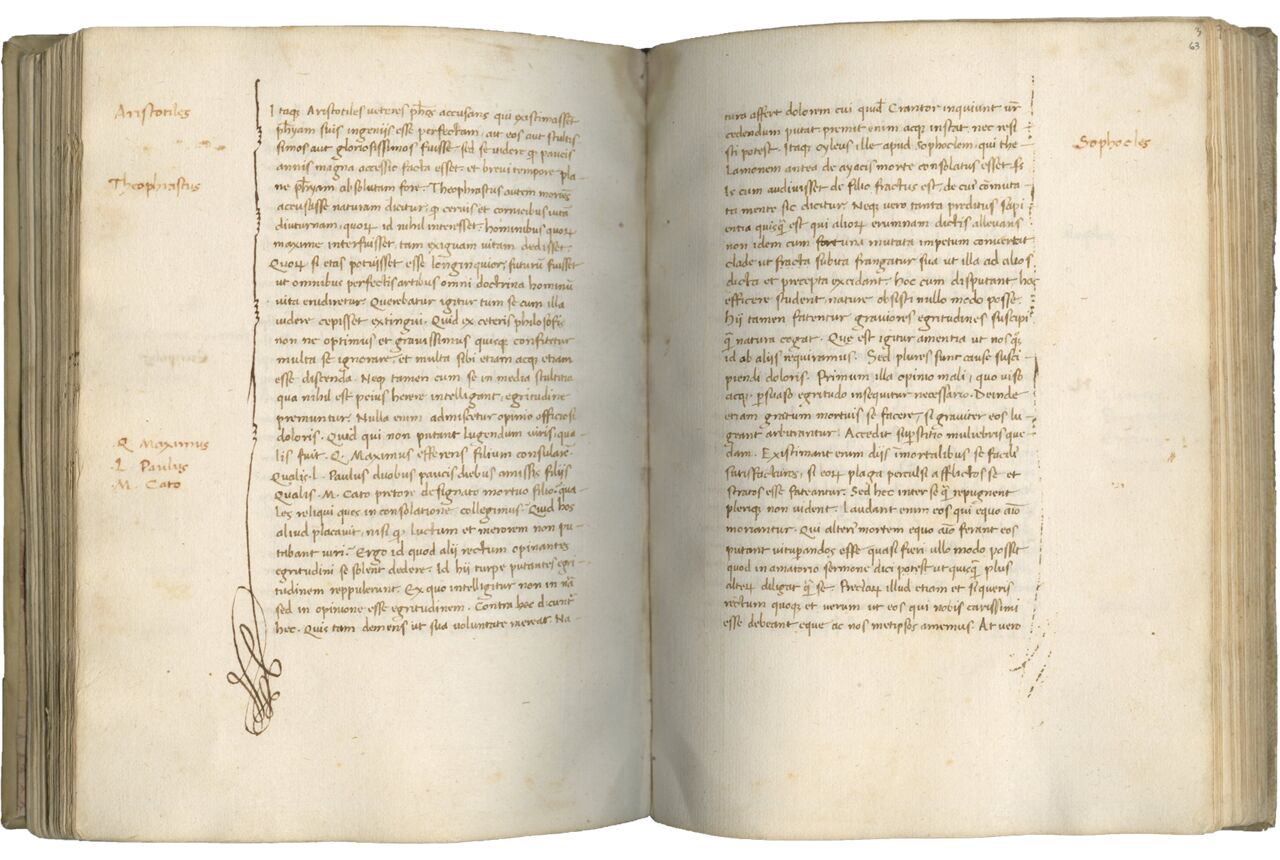 Aristotiles
Theophrastus
.Q. Maximus
.L. Paulus
.M. Cato
Itaq; Aristotiles veteres ph̃os accusans qui existimasset
ph̃yam suis ingenijs esse perfectam, aut eos aut stultis
simos aut gloriosissimos fuisse. sed se videre q̃ paucis
annis magna accessio facta esset. et brevi tempore pla-
ne ph̃yam absolutam fore. Theophrastus autem moriẽs
accusasse naturam dicitur. q̃ cervis et cornicibus vitã
diuturnam, quorꝝ id nihil interesset. hominibus quorꝝ
maxime interfuisset, tam exiguam vitam dedisset.
Quorꝝ si etas potuisset esse longinquior, futurũ fuisset
ut omnibus perfectis artibus omni doctrina hominũ
vita erudiretur. Querebatur igitur tum se cum illa
videre cepisset extingui. Quid ex ceteris philosofis
non ne optimus et gravissimus quisq; confitetur
multa se ignorare. et multa sibi etiam atq; etiam
esse discenda. Neq; tamen cum se in media stultitia
qua nihil est peius herere intelligant, egritudine
premuntur. Nulla enim admiscetur opinio officiosi
doloris. Quid qui non putant lugendum viris. qua
lis fuit .Q. Maximus efferens filium consularẽ.
Qualis .L. Paulus duobus paucis diebus amissis filijs
Qualis .M. Cato pretore designato mortuo filio. qua
les reliqui quos in consolatione collegimus. Quid hos
aliud placavit, nisi q̃ luctum et merorem non pu-
tabant viri. Ergo id quod alij rectum opinantes
egritudini se solent dedere. Id hij turpe putantes egri
tudinem reppulerunt. Ex quo intelligitur non in nã
sed in opinione esse egritudinem. Contra hec dicunt̃
hec. Quis tam demens ut sua voluntate mereat. Na-
63
tura affert dolorem cui quid̃ Crantor inquiunt vr̃
cedendum putat premit enim atq; instat, nec resi
sti potest. Itaq; Oyleus ille apud Sophoclem, qui the
lamonem antea de ayacis morte consolatus esset. Is
le cum audivisset de filio fractus est, de cui cõmuta
ta mente sic dicitur. Neq; vero tanta preditus sapi
entia quisq̃ est qui aliorꝝ erumnam dictis allevans
non idem cum fortuna mutata impetum convertat
clade ut fracta subita frangatur sua ut illa ad alios
dicta et precepta excidant. Hoc cum disputant hoc
efficere student, nature obsisti nullo modo posse.
Hij tamen fatentur graviores egritudines suscipi
q̃ natura cogat. Que est igitur amentia ut nos q̃;
id ab alijs requiramus. Sed plures sunt cause susci
piendi doloris. Primum illa opinio mali, quo viso
atq; p̃suaso egritudo insequitur necessario. Deinde
etiam gratum mortuis se facere, si graviter eos lu
geant arbitrantur. Accedit sup̃stitio muliebris que
dam. Existimant enim dijs imortalibus se facili
satisfacturos, si eorꝝ plaga perculsi afflictos se et
stratos esse fateantur. Sed hec inter se q̃ repugnent
pleriq; non vident. Laudant enim eos qui equo aĩo
moriantur. Qui alteri mortem equo aĩo ferant eos
putant vitup̃andos esse quasi fieri ullo modo possit
quod in amatorio sermone dici potest ut quisq̃ plus
alterꝝ diligat q̃ se. Preclarꝝ illud etiam et si queris
rectum quoq; et verum ut eos qui nobis carissimi
esse debeant eque ac nos metipsos amemus. At vero
Sophocles